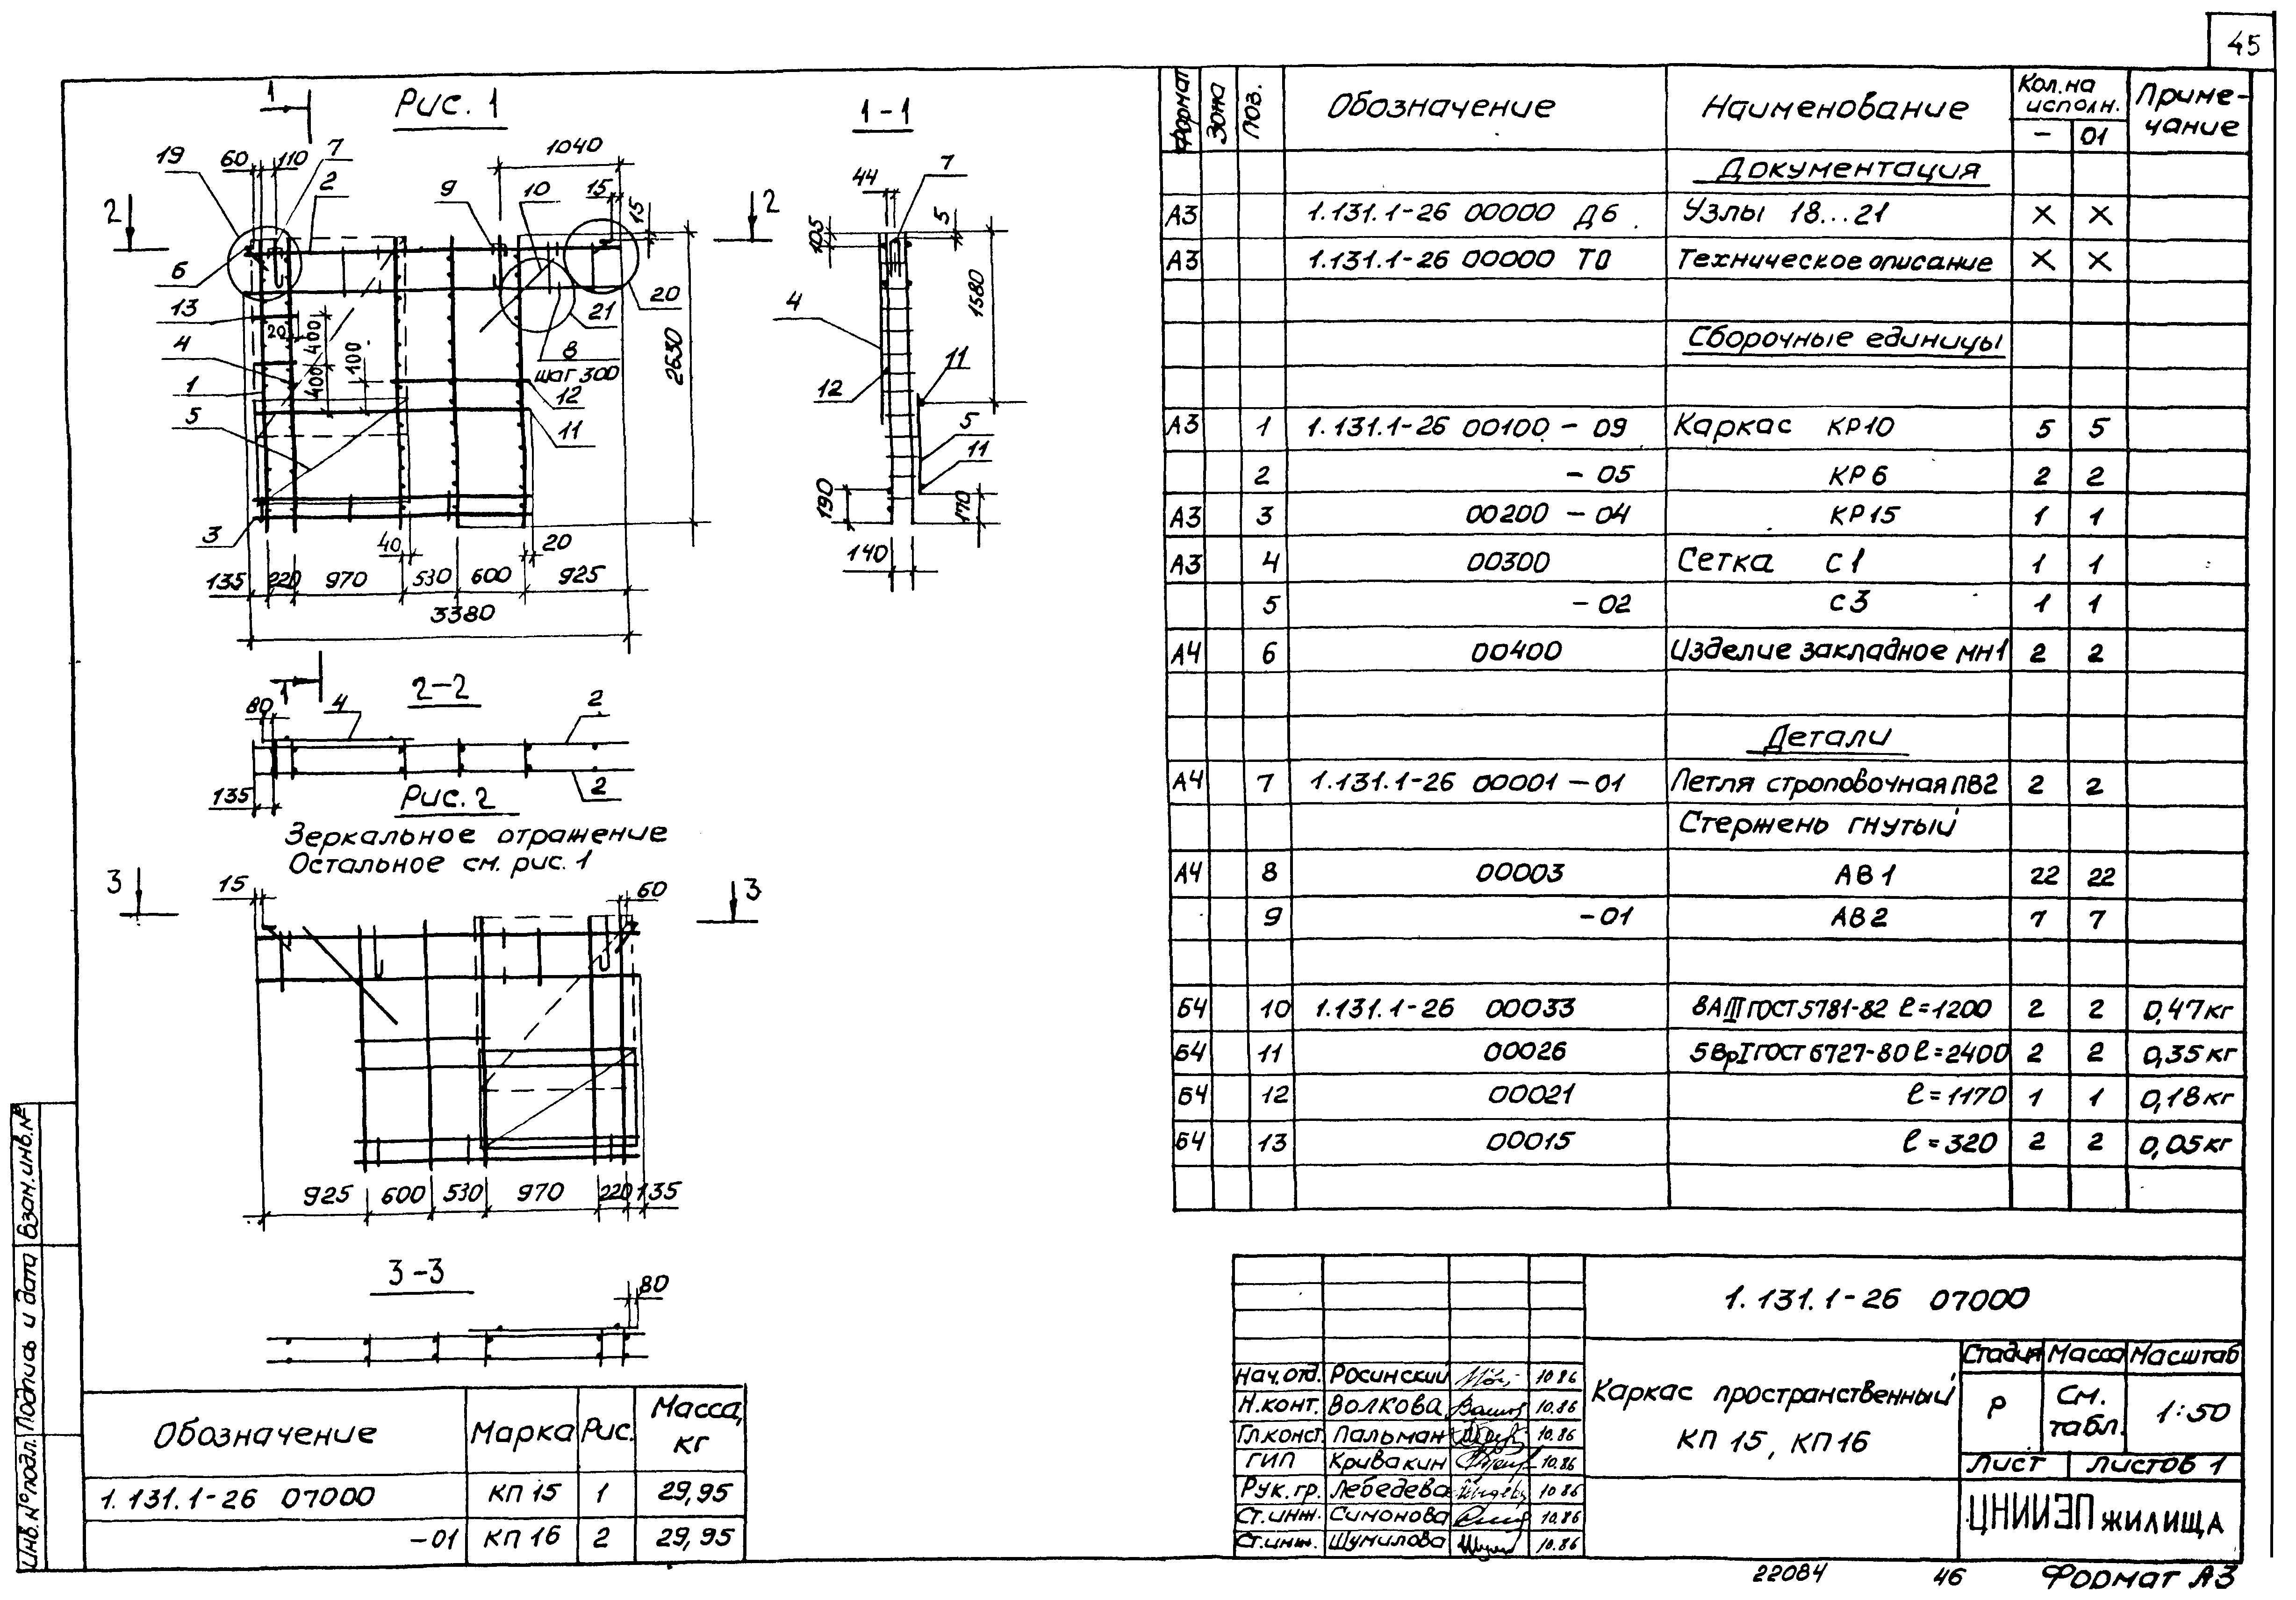 45
Рис. 1
1
19
60
110
7
2
1040
9
10
15
15
2
2
6
13
20
400
400
100
4
1
5
3
8
шаг 300
21
20
12
11
2630
40
20
135
220
970
530
600
925
3380
1
1-1
44
7
5
105
4
12
1580
11
5
11
190
170
140
2-2
80
4
2
2
135
Рис. 2
Зеркальное отражение
Остальное см. рис. 1
3
15
60
3
925
600
530
970
220
135
3-3
80
Обозначение Марка Рис. Масса, кг
1.131.1-26 07000 КП 15 1 29,95
-01 КП 16 2 29,95
Формат Зона Поз. Обозначение Наименование Кол. на исполн. Примечание
- 01
Документация
А3 1.131.1-26 00000 Д6 Узлы 18...21 × ×
А3 1.131.1-26 00000 ТО Техническое описание × ×
Сборочные единицы
А3 1 1.131.1-26 00100 - 09 Каркас КР10 5 5
2 - 05 КР6 2 2
А3 3 00200 - 04 КР15 1 1
А3 4 00300 Сетка С1 1 1
5 - 02 С3 1 1
А4 6 00400 Изделие закладное МН1 2 2
Детали
А4 7 1.131.1-26 00001 - 01 Петля строповочная ПВ2 2 2
Стержень гнутый
А4 8 00003 АВ1 22 22
9 -01 АВ2 7 7
Б4 10 1.131.1-26 00033 8АIII ГОСТ 5781-82 ℓ=1200 2 2 0,47 кг
Б4 11 00026 5ВрI ГОСТ 6727-80 ℓ=2400 2 2 0,35 кг
Б4 12 00021 ℓ=1170 1 1 0,18 кг
Б4 13 00015 ℓ=320 2 2 0,05 кг
1.131.1-26 07000
Нач.отд. Росинский 10.86
Н.конт. Волкова 10.86
Гл.конст. Пальман 10.86
ГИП Кривакин 10.86
Рук.гр. Лебедева 10.86
Ст.инж. Симонова 10.86
Ст.инж. Шумилова 10.86
Каркас пространственный
КП 15, КП 16
Стадия Масса Масштаб
Р См. табл. 1:50
Лист Листов 1
ЦНИИЭП жилища
Инв. № подл. Подпись и дата Взам. инв. №
22084 46 Формат А3